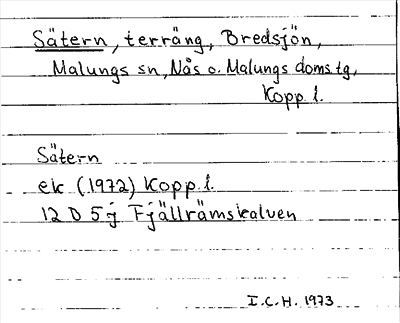 Sätern, terräng, Bredsjön,
Malungs sn, Nås o. Malungs doms.tg,
Kopp. l.
Sätern
ek (1972) Kopp. l.
12 D 5 j Fjällrämskalven
I.C.H. 1973